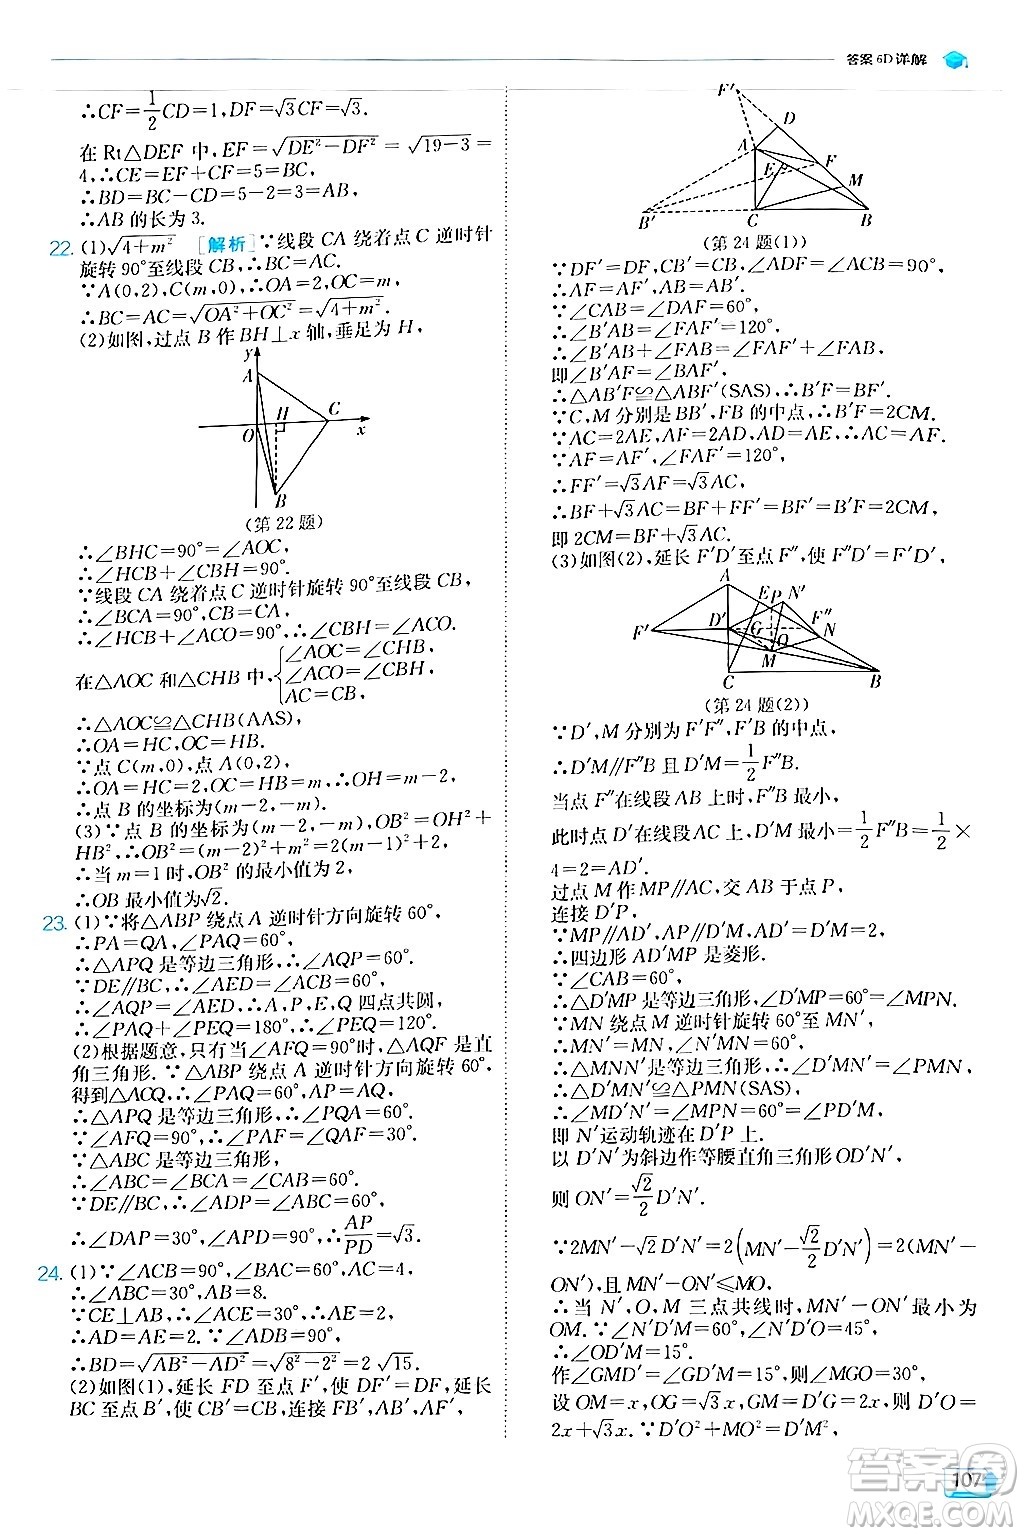 答案 6D 详解
∴CF=1/2CD=1,DF=√3CF=√3.
在 Rt△DEF 中,EF=√(DE²-DF²)=√(19-3)=
4,∴CE=EF+CF=5=BC.
∴BD=BC-CD=5-2=3=AB.
∴AB 的长为 3.
22. (1)√(4+m²) [解析]∵线段 CA 绕着点 C 逆时针
旋转 90°至线段 CB,∴BC=AC.
∵A(0,2),C(m,0),∴OA=2,OC=m.
∴BC=AC=√(OA²+OC²)=√(4+m²).
(2)如图,过点 B 作 BH⊥x 轴,垂足为 H,
y
A
H
C
O
x
B
(第 22 题)
∴∠BHC=90°=∠AOC,
∴∠HCB+∠HBC=90°.
∵线段 CA 绕着点 C 逆时针旋转 90°至线段 CB,
∴∠BCA=90°,CB=CA,
∴∠HCB+∠ACO=90°,∴∠CBH=∠ACO.
在△AOC 和△CHB 中,{∠AOC=∠CHB,
∠ACO=∠CBH,
AC=CB,
∴△AOC≌△CHB(AAS),
∴OA=HC,OC=HB.
∵点 C(m,0),点 A(0,2),
∴OA=HC=2,OC=HB=m,∴OH=m-2,
∴点 B 的坐标为(m-2,-m).
(3)∵点 B 的坐标为(m-2,-m),OB²=OH²+
HB²,∴OB²=(m-2)²+m²=2(m-1)²+2,
∴当 m=1 时,OB² 的最小值为 2,
∴OB 最小值为√2.
23. (1)∵将△ABP 绕点 A 逆时针方向旋转 60°,
∴PA=QA,∠PAQ=60°,
∴△APQ 是等边三角形,∴∠AQP=60°.
∵DE∥BC,∴∠AED=∠ACB=60°,
∴∠AQP=∠AED,∴A,P,E,Q 四点共圆,
∴∠PAQ+∠PEQ=180°,∴∠PEQ=120°.
(2)根据题意,只有当∠AFQ=90°时,△AQF 是直
角三角形.∵△ABP 绕点 A 逆时针方向旋转 60°
得到△ACQ,∴∠PAQ=60°,AP=AQ,
∴△APQ 是等边三角形,∴∠PQA=60°.
∵∠AFQ=90°,∴∠PAF=∠QAF=30°.
∵△ABC 是等边三角形,
∴∠ABC=∠BCA=∠BAC=60°.
∵DE∥BC,∴∠ADP=∠ABC=60°,
∴∠DAP=30°,∠APD=90°,∴AP/PD=√3.
24. (1)∵∠ACB=90°,∠BAC=60°,AC=4,
∴∠ABC=30°,AB=8.
∵CE⊥AB,∴∠ACE=30°,∴AE=2.
∴AD=AE=2.∵∠ADB=90°,
∴BD=√(AB²-AD²)=√(8²-2²)=2√15.
(2)如图(1),延长 FD 至点 F′,使 DF′=DF,延长
BC 至点 B′,使 CB′=CB,连接 FB′,AB′,AF′,
F′
D
A
E
F
M
B′
C
B
(第 24 题(1))
∵DF′=DF,CB′=CB,∠ADF=∠ACB=90°,
∴AF=AF′,AB=AB′.
∵∠CAB=∠DAF=60°,
∴∠B′AB=∠FAF′=120°,
∴∠B′AB+∠BAF=∠FAF′+∠BAF,
即∠B′AF=∠BAF′,
∴△AB′F≌△ABF′(SAS),∴B′F=BF′.
∵C,M 分别是 BB′,FB 的中点,∴B′F=2CM.
∵AC=2AE,AF=2AD,AD=AE,∴AC=AF.
∵AF=AF′,∠FAF′=120°,
∴FF′=√3AF=√3AC,
∴BF+√3AC=BF+FF′=BF′=B′F=2CM,
即 2CM=BF+√3AC.
(3)如图(2),延长 F′D′至点 F″,使 F′D′=D′F″.
A
E
P
N′
F′
D′
G
F″
N
O
M
C
B
(第 24 题(2))
∵D′,M 分别为 F′F″,F′B 的中点,
∴D′M∥F″B 且 D′M=1/2F″B.
当点 F″在线段 AB 上时,F″B 最小,
此时点 D′在线段 AC 上,D′M 最小=1/2F″B=1/2×
4=2=AD′.
过点 M 作 MP∥AC,交 AB 于点 P,
连接 D′P.
∵MP∥AD′,AP∥D′M,AD′=D′M=2,
∴四边形 AD′MP 是菱形.
∵∠CAB=60°,
∴△D′MP 是等边三角形,∠D′MP=60°=∠MPN.
∵MN 绕点 M 逆时针旋转 60°至 MN′,
∴MN=MN′,∠N′MN=60°,
∴△MNN′是等边三角形,∠D′MN′=∠PMN,
∴△D′MN′≌△PMN(SAS),
∴∠MD′N′=∠MPN=60°=∠MD′P,
即 N′运动轨迹在 D′P 上.
以 D′N′为斜边作等腰直角三角形 OD′N′,
则 ON′=√2/2 D′N′.
∵2MN′-√2D′N′=2(MN′-√2/2 D′N′)=2(MN′-
ON′),且 MN′-ON′≤MO.
∴当 N′,O,M 三点共线时,MN′-ON′最小为
OM.∵∠N′D′M=60°,∠N′D′O=45°,
∴∠OD′M=15°.
作∠GMD′=∠GD′M=15°,则∠MGO=30°,
设 OM=x,OG=√3x,GM=GD′=2x,则 D′O=
2x+√3x.∵∠D′OM=90°,∴D′O²+MO²=D′M²,
107
答案圈
MXQE.COM